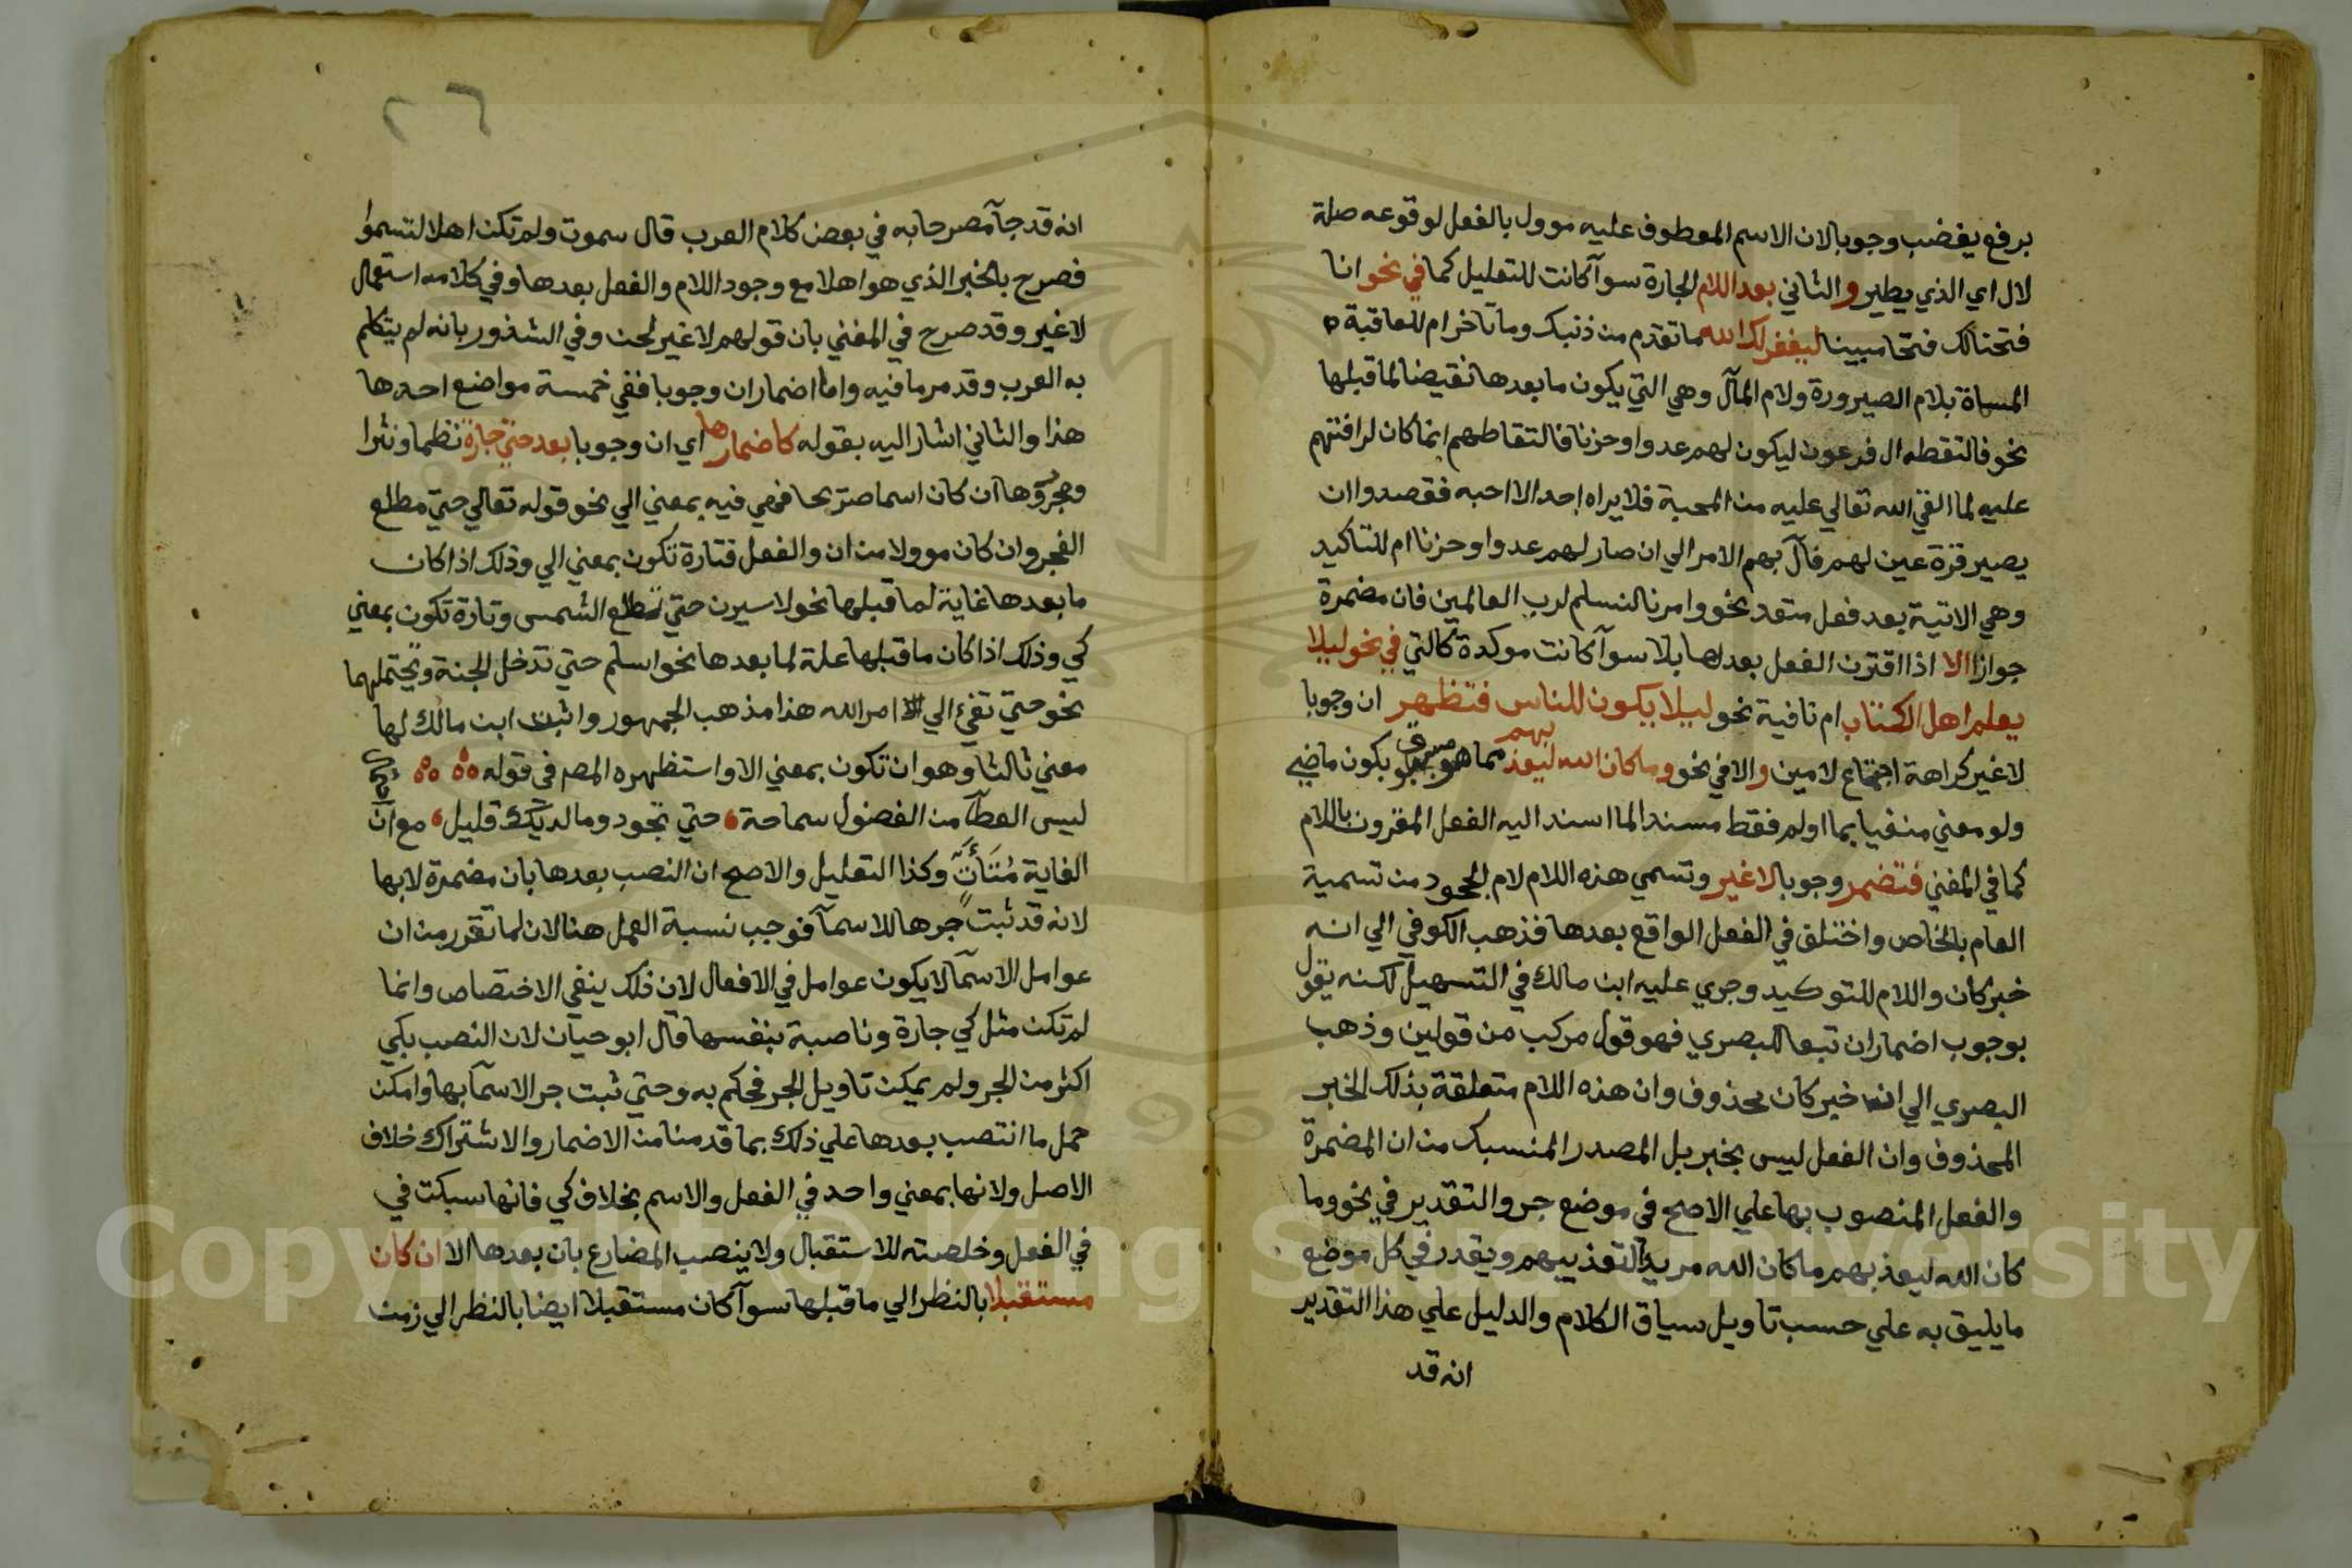 برفع يغضب وجوبا لان الاسم المعطوف عليه موول بالفعل لوقوعه صلة
لال اي الذي يطير والثاني بعد اللام الجارة سوآ كانت للتعليل كما في نحو انا
فتحنا لك فتحا مبينا ليغفر لك الله ما تقدم من ذنبك وما تاخر ام للعاقبة
المسماة بلام الصيرورة ولام المآل وهي التي يكون ما بعدها نقيضا لما قبلها
نحو فالتقطه ال فرعون ليكون لهم عدوا وحزنا فالتقاطهم انما كان لرافتهم
عليه لما القي الله تعالي عليه من المحبة فلا يراه احد الا احبه فقصدوا ان
يصير قرة عين لهم فآل بهم الامر الي ان صار لهم عدوا وحزنا ام للتاكيد
وهي الاتية بعد فعل متعد نحو وامرنا لنسلم لرب العالمين فان مضمرة
جوازا الا اذا اقترن الفعل بعدها بلا سوآ كانت موكدة كالتي في نحو ليلا
يعلم اهل الكتاب ام نافية نحو ليلا يكون للناس فتظهر ان وجوبا
لا غير كراهة اجتماع لامين والا في نحو وما كان الله ليعذبهم مما هو مسبوق بكون ماضي
ولو معني منفيا بما او لم فقط مسند الما اسند اليه الفعل المقرون باللام
كما في المغني فتضمر وجوبا لا غير وتسمي هذه اللام لام الجحود من تسمية
العام بالخاص واختلف في الفعل الواقع بعدها فذهب الكوفي الي انه
خبر كان واللام للتوكيد وجري عليه ابن مالك في التسهيل لكنه يقول
بوجوب اضمار ان تبعا للبصري فهو قول مركب من قولين وذهب
البصري الي ان خبر كان محذوف وان هذه اللام متعلقة بذلك الخبر
المحذوف وان الفعل ليس بخبر بل المصدر المنسبك من ان المضمرة
والفعل المنصوب بها علي الاصح في موضع جر والتقدير في نحو وما
كان الله ليعذبهم ما كان الله مريدا لتعذيبهم ويقدر في كل موضع
ما يليق به علي حسب تاويل سياق الكلام والدليل علي هذا التقدير
انه قد
٢٦
انه قد جآ مصرحا به في بعض كلام العرب قال سموت ولم تكن اهلا لتسموا
فصرح بالخبر الذي هو اهلا مع وجود اللام والفعل بعدها وفي كلامه استعمال
لا غير وقد صرح في المغني بان قولهم لا غير لحن وفي الشذور بانه لم يتكلم
به العرب وقد مر ما فيه واما اضمار ان وجوبا ففي خمسة مواضع احدها
هذا والثاني اشار اليه بقوله كاضمارها اي ان وجوبا بعد حتي جارة نظما ونثرا
ومجرورها ان كان اسما صريحا فهي فيه بمعني الي نحو قوله تعالي حتي مطلع
الفجر وان كان موولا من ان والفعل فتارة تكون بمعني الي وذلك اذا كان
ما بعدها غاية لما قبلها نحو لاسيرن حتي تطلع الشمس وتارة تكون بمعني
كي وذلك اذا كان ما قبلها علة لما بعدها نحو اسلم حتي تدخل الجنة ويحتملهما
نحو حتي تفيء الي امر الله هذا مذهب الجمهور واثبت ابن مالك لها
معني ثالثا وهو ان تكون بمعني الا واستظهره المص في قوله
ليس العطآ من الفضول سماحة حتي تجود وما لديك قليل مع ان
الغاية متأت وكذا التعليل والاصح ان النصب بعدها بان مضمرة لا بها
لانه قد ثبت جرها للاسمآ فوجب نسبة العمل هنا لان لما تقرر من ان
عوامل الاسمآ لا يكون عوامل في الافعال لان ذلك ينفي الاختصاص وانما
لم تكن مثل كي جارة وناصبة بنفسها قال ابو حيان لان النصب بكي
اكثر من الجر ولم يمكن تاويل الجر فحكم به وحتي ثبت جر الاسمآ بها وامكن
حمل ما انتصب بعدها علي ذلك بما قدمنا من الاضمار والاشتراك خلاف
الاصل ولانها بمعني واحد في الفعل والاسم بخلاف كي فانها سبكت في
في الفعل وخلصته للاستقبال ولا ينصب المضارع بان بعدها الا ان كان
مستقبلا بالنظر الي ما قبلها سوآ كان مستقبلا ايضا بالنظر الي زمن
Copyright © King Saud University